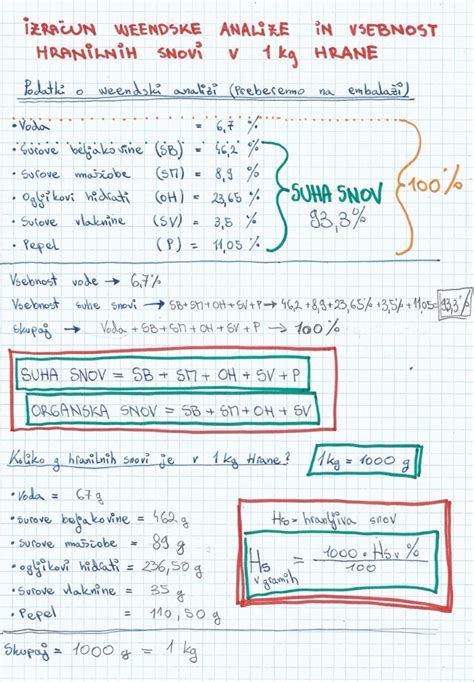 IZRAČUN WEENDSKE ANALIZE IN VSEBNOST
HRANILNIH SNOVI V 1 kg HRANE
Podatki o weendski analizi (Preberemo na embalaži)
• Voda = 6,7 %
• Surove beljakovine (SB) = 46,2 %
• Surove maščobe (SM) = 8,9 %
• Ogljikovi hidrati (OH) = 23,65 %
• Surove vlaknine (SV) = 3,5 %
• Pepel (P) = 11,05 %
SUHA SNOV
93,3%
100%
Vsebnost vode → 6,7%
Vsebnost suhe snovi → SB+SM+OH+SV+P → 46,2+8,9+23,65%+3,5%+11,05= 93,3%
Skupaj → Voda + SB + SM + OH + SV + P → 100%
SUHA SNOV = SB + SM + OH + SV + P
ORGANSKA SNOV = SB + SM + OH + SV
Koliko g hranilnih snovi je v 1 kg Hrane?
1kg = 1000 g
• Voda = 67g
• Surove beljakovine = 462 g
• Surove maščobe = 89 g
• Ogljikovi hidrati = 236,50 g
• Surove vlaknine = 35 g
• Pepel = 110,50 g
Hs = hranljiva snov
Hs v gramih = 1000 · Hs v % / 100
Skupaj = 1000 g = 1 kg